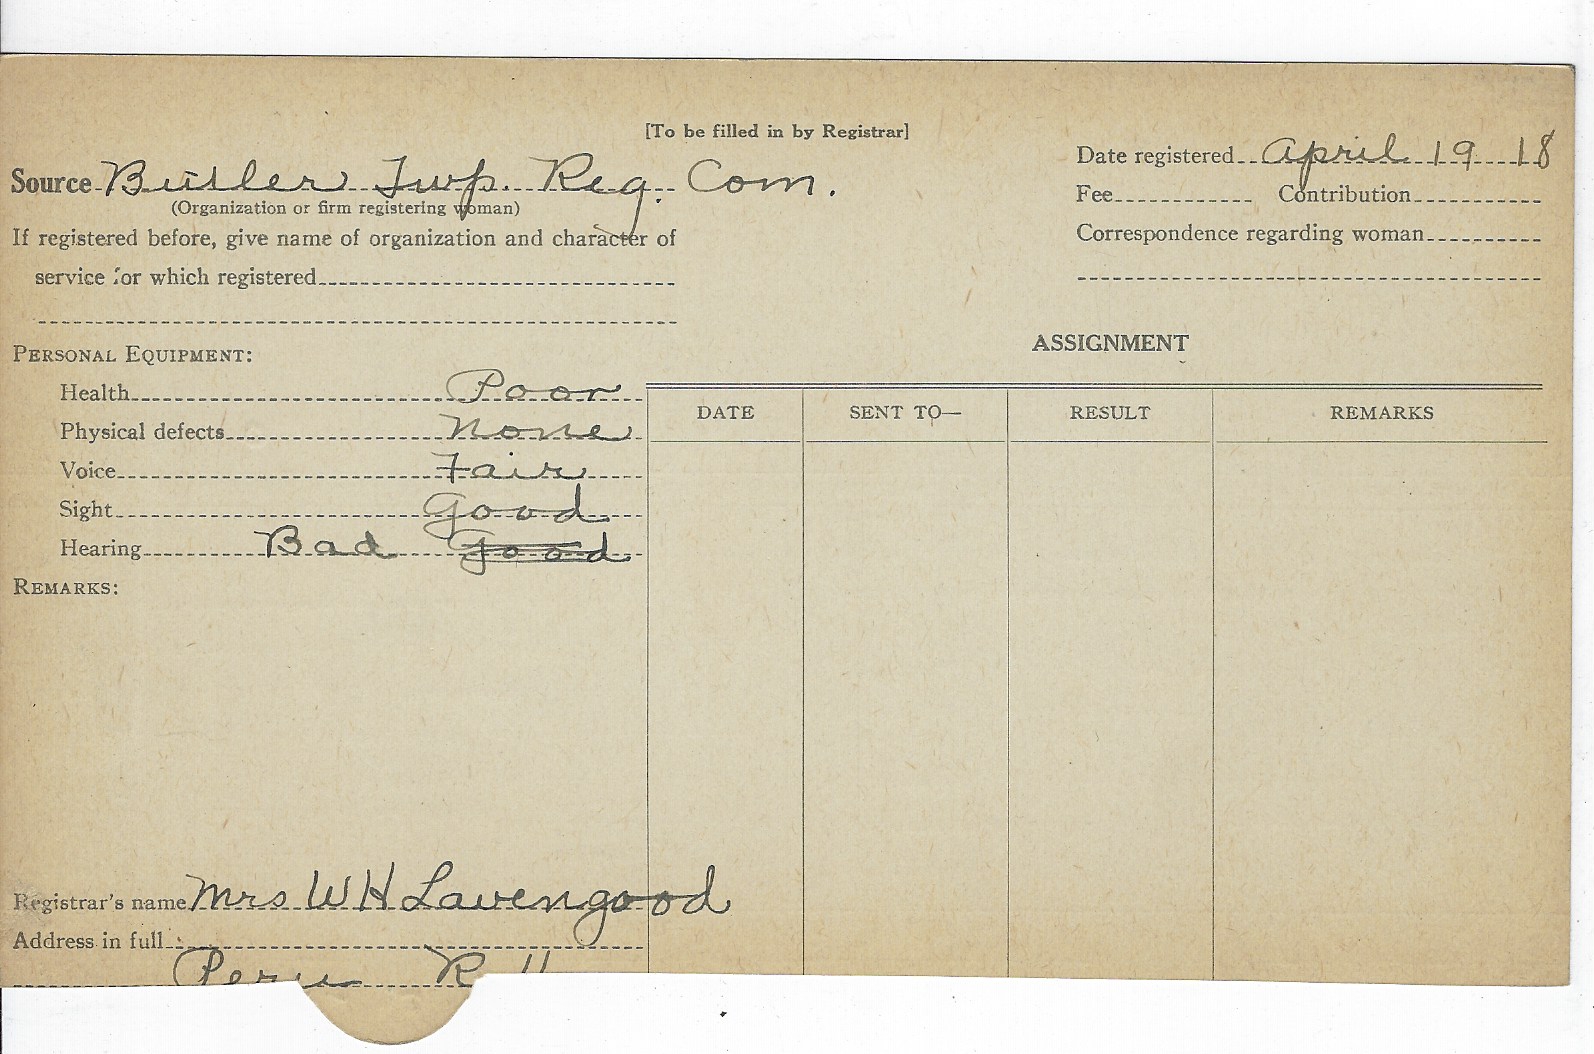 [To be filled in by Registrar]
Source Butler Twp. Reg. Com.
(Organization or firm registering woman)
If registered before, give name of organization and character of
service for which registered
Date registered April 19 18
Fee Contribution
Correspondence regarding woman
PERSONAL EQUIPMENT:
Health Poor
Physical defects None
Voice Fair
Sight Good
Hearing Bad Good
REMARKS:
ASSIGNMENT
DATE SENT TO— RESULT REMARKS
Registrar's name Mrs W H Lavengood
Address in full
Peru R 11